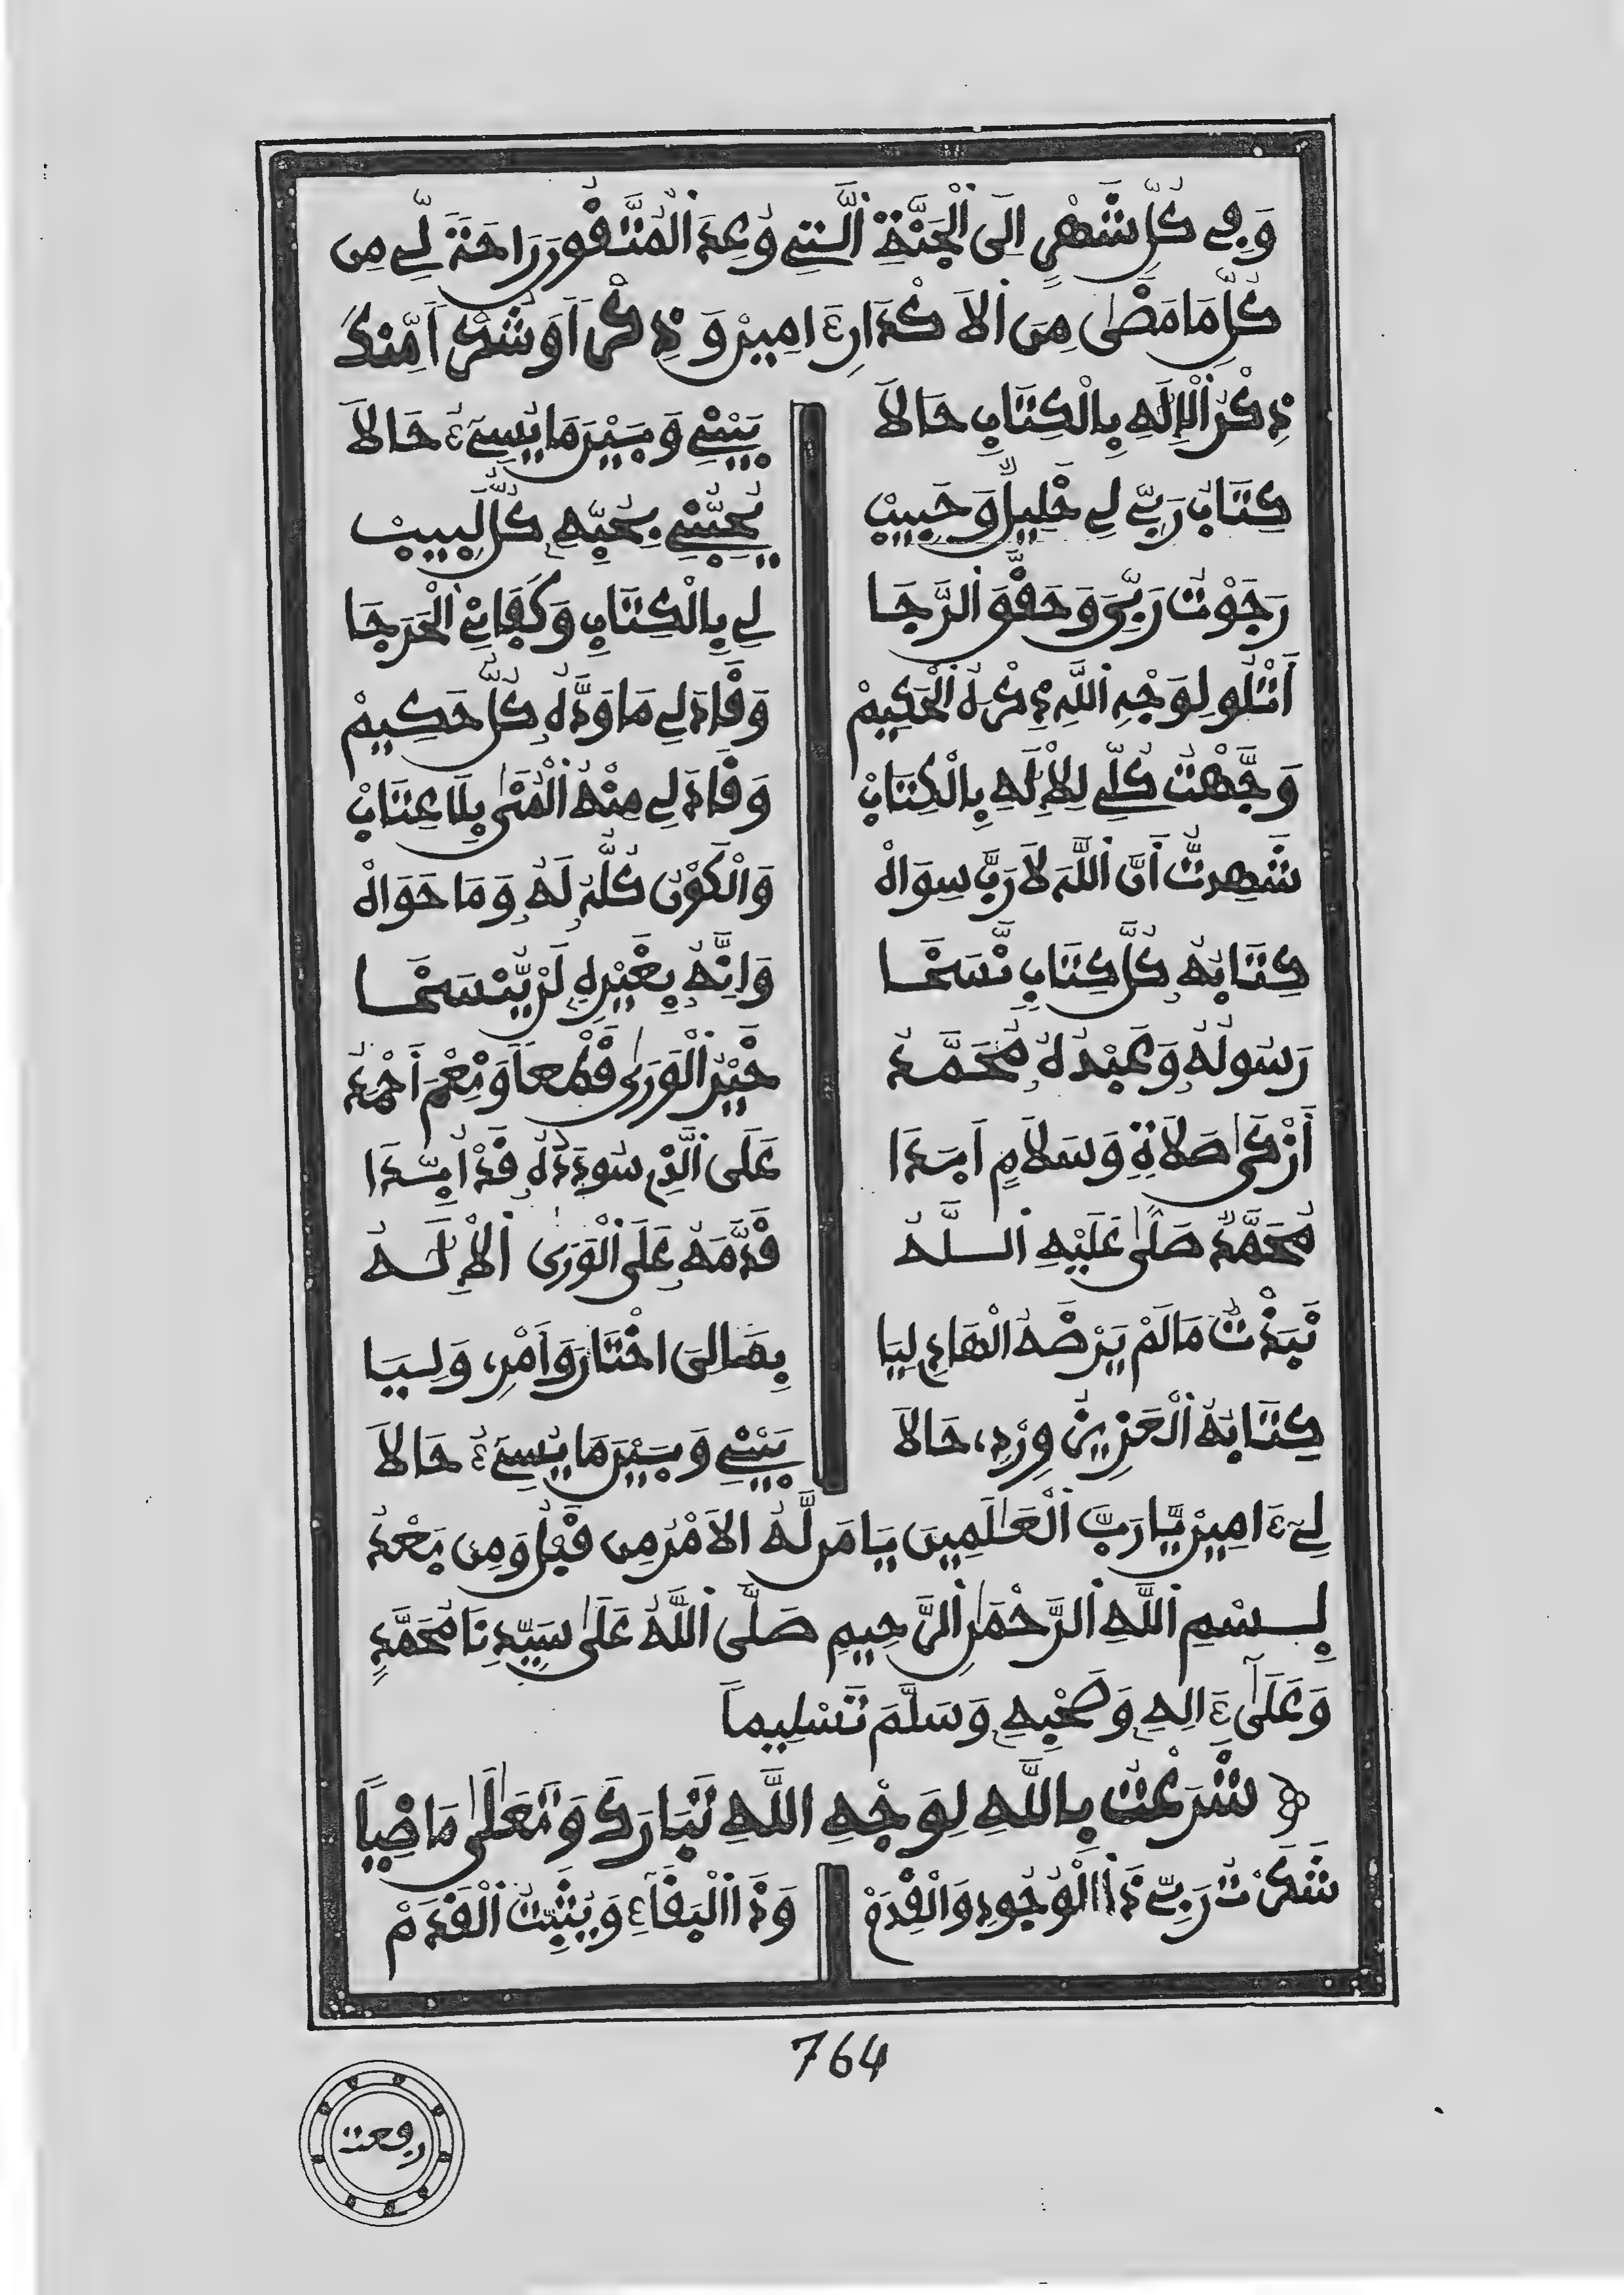 وَفِي كُلِّ شَهْرٍ اِلَى الْجَنَّةِ الَّتِي وُعِدَ الْمُتَّقُونَ رَاحَةً لِّي مِن
كُلِّ مَا مَضَىٰ مِنَ الاَكْدَارِ ءَامِينْ وَذِكْراً وَشُكْراً مِّنكَ
ذِكْرُ الْإِلَهِ بِالْكِتَابِ حَالاَ بَيْنِي وَبَيْنَ مَا يُسِيءُ حَالاَ
كِتَابُ رَبِّي لِي خَلِيلٌ وَحَبِيبْ يُحِبُّنِي بِحُبِّهِ كُلُّ لَبِيبْ
رَجَوْتُ رَبِّيَ وَحَقَّقَ الرَّجَا لِي بِالْكِتَابِ وَكَفَانِي الْحَرَجَا
أَتْلُو لِوَجْهِ اللَّهِ ذِكْرَهُ الْحَكِيمْ وَقَادَ لِي مَا وَدَّهُ كُلُّ حَكِيمْ
وَجَّهْتُ كُلِّي لِلْإِلَهِ بِالْكِتَابْ وَقَادَ لِي مِنْهُ الْمُنَىٰ بِلَا عِتَابْ
شَهِدتُّ أَنَّ اللَّهَ لاَ رَبَّ سِوَاهْ وَالْكَوْنُ كُلُّهُ لَهُ وَمَا حَوَاهْ
كِتَابُهُ كُلَّ كِتَابٍ نَّسَخَا وَإِنَّهُ بِغَيْرِهِ لَن يُّنسَخَا
رَسُولُهُ وَعَبْدُهُ مُحَمَّدُ خَيْرُ الْوَرَىٰ قَطْعاً وَنِعْمَ أَحْمَدُ
أَزْكَىٰ صَلَاةٍ وَسَلَامٍ اَبَدَا عَلَى الَّذِي سُودَدُهُ قَدْ اَبَّدَا
مُحَمَّدٌ صَلَّىٰ عَلَيْهِ اللَّهُ قَدَّمَهُ عَلَى الْوَرَى الْإِلَهُ
نَبَذْتُ مَا لَمْ يَرْضَهُ الْهَادِي لِيَا بِمَا لِيَ اخْتَارَ وَأَمْرِي وَلِيَا
كِتَابُهُ الْعَزِيزُ وِرْدِي حَالاَ بَيْنِي وَبَيْنَ مَا يُسِيءُ حَالاَ
لِي ءَامِينْ يَا رَبَّ الْعَٰلَمِينَ يَا مَن لَّهُ الاَمْرُ مِن قَبْلُ وَمِن بَعْدُ
بِسْمِ اللَّهِ الرَّحْمَٰنِ الرَّحِيمِ صَلَّى اللَّهُ عَلَىٰ سَيِّدِنَا مُحَمَّدٍ
وَعَلَىٰ ءَالِهِ وَصَحْبِهِ وَسَلَّمَ تَسْلِيماً
شَرَعْتُ بِاللَّهِ لِوَجْهِ اللَّهِ تَبَارَكَ وَتَعَٰلَىٰ مَاضِياً
شَكَرْتُ رَبِّي ذَا الْوُجُودِ وَالْقِدَمْ وَذَا الْبَقَاءِ وَيُثَبِّتُ الْقَدَمْ
764
رفعت